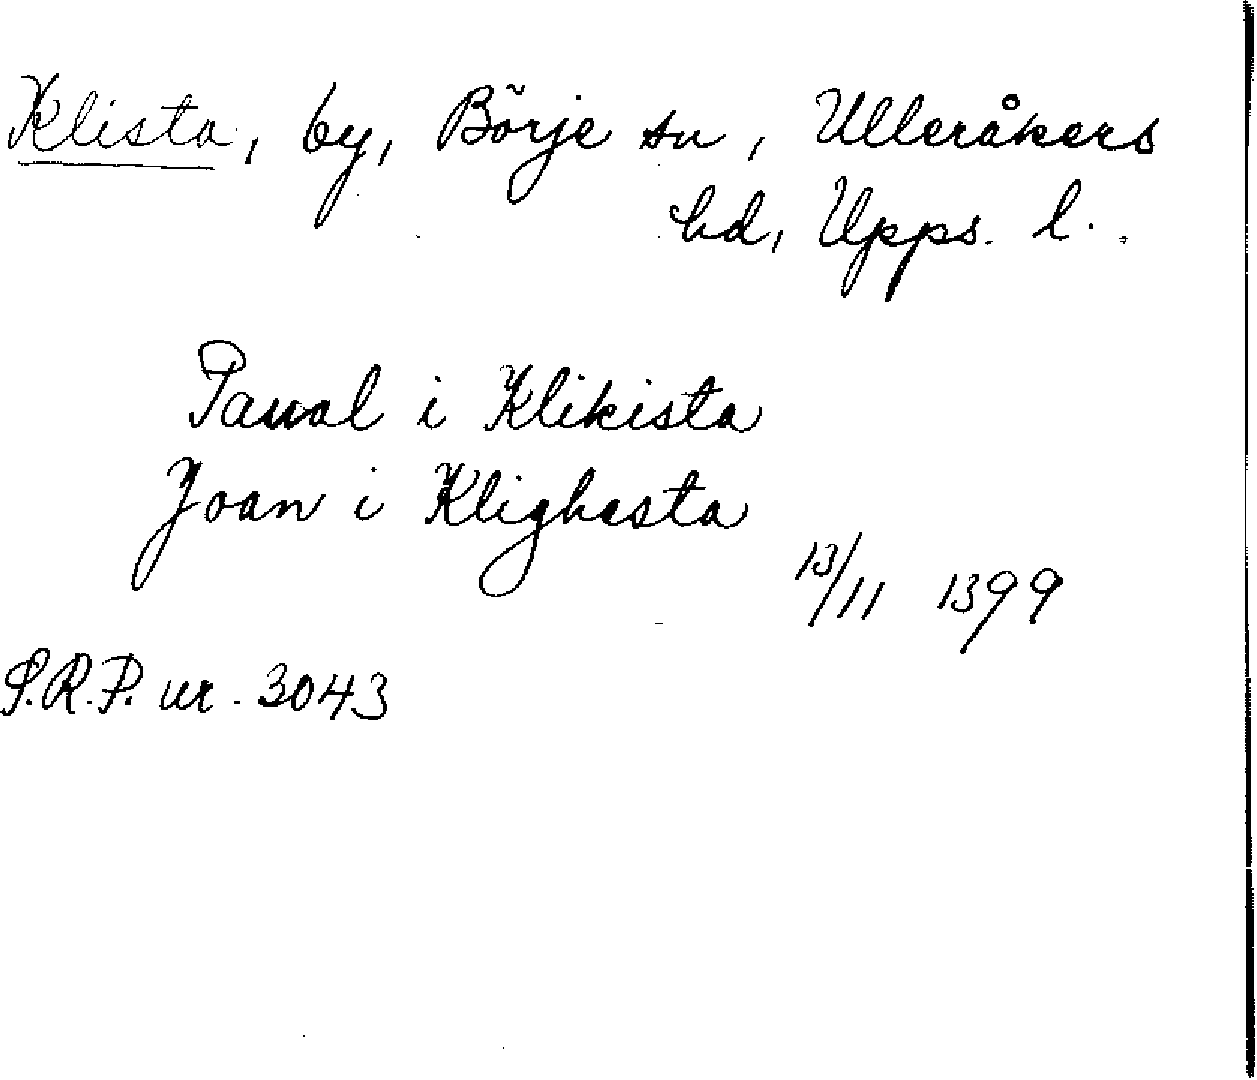 Klista, by, Börje sn, Ulleråkers
hd, Upps. l.
Pawal i Klikista
Joan i Klighasta
13/11 1399
S.R.P. nr. 3043